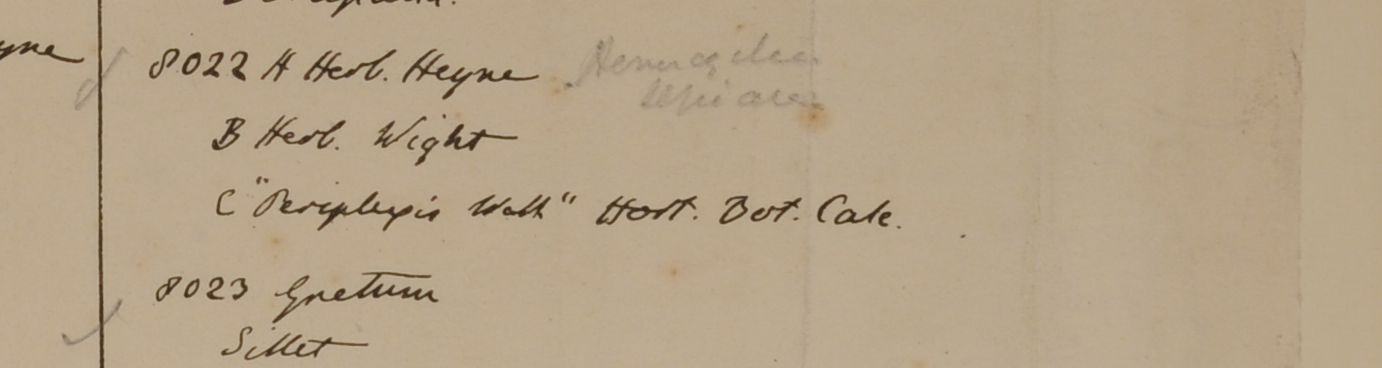 8022 A Herb. Heyne
B Herb. Wight
C "Periplexis Wall" Hort. Bot. Calc.
8023 Gnetum
Sillet